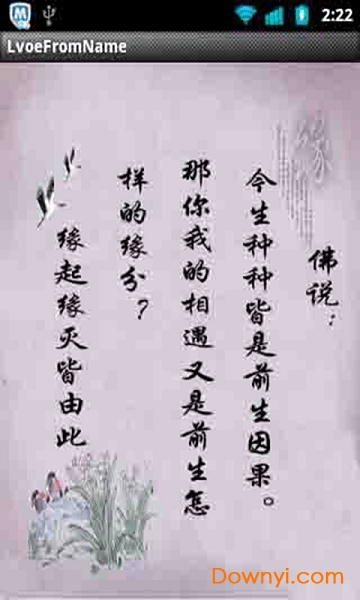 2:22
LvoeFromName
缘
佛说：
今生种种皆是前生因果。
那你我的相遇又是前生怎
样的缘分？
缘起缘灭皆由此
Downyi.com